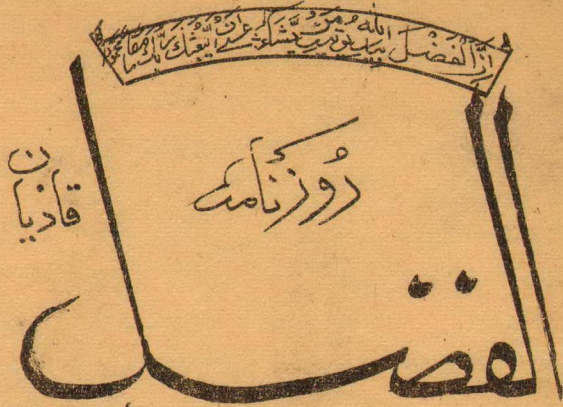 اِنَّ الْفَضْلَ بِيَدِ اللهِ يُؤْتِيْهِ مَنْ يَّشَآءُ عَسٰى اَنْ يَّبْعَثَكَ رَبُّكَ مَقَامًا مَّحْمُوْدًا
روزنامہ
قادیان
الفضل